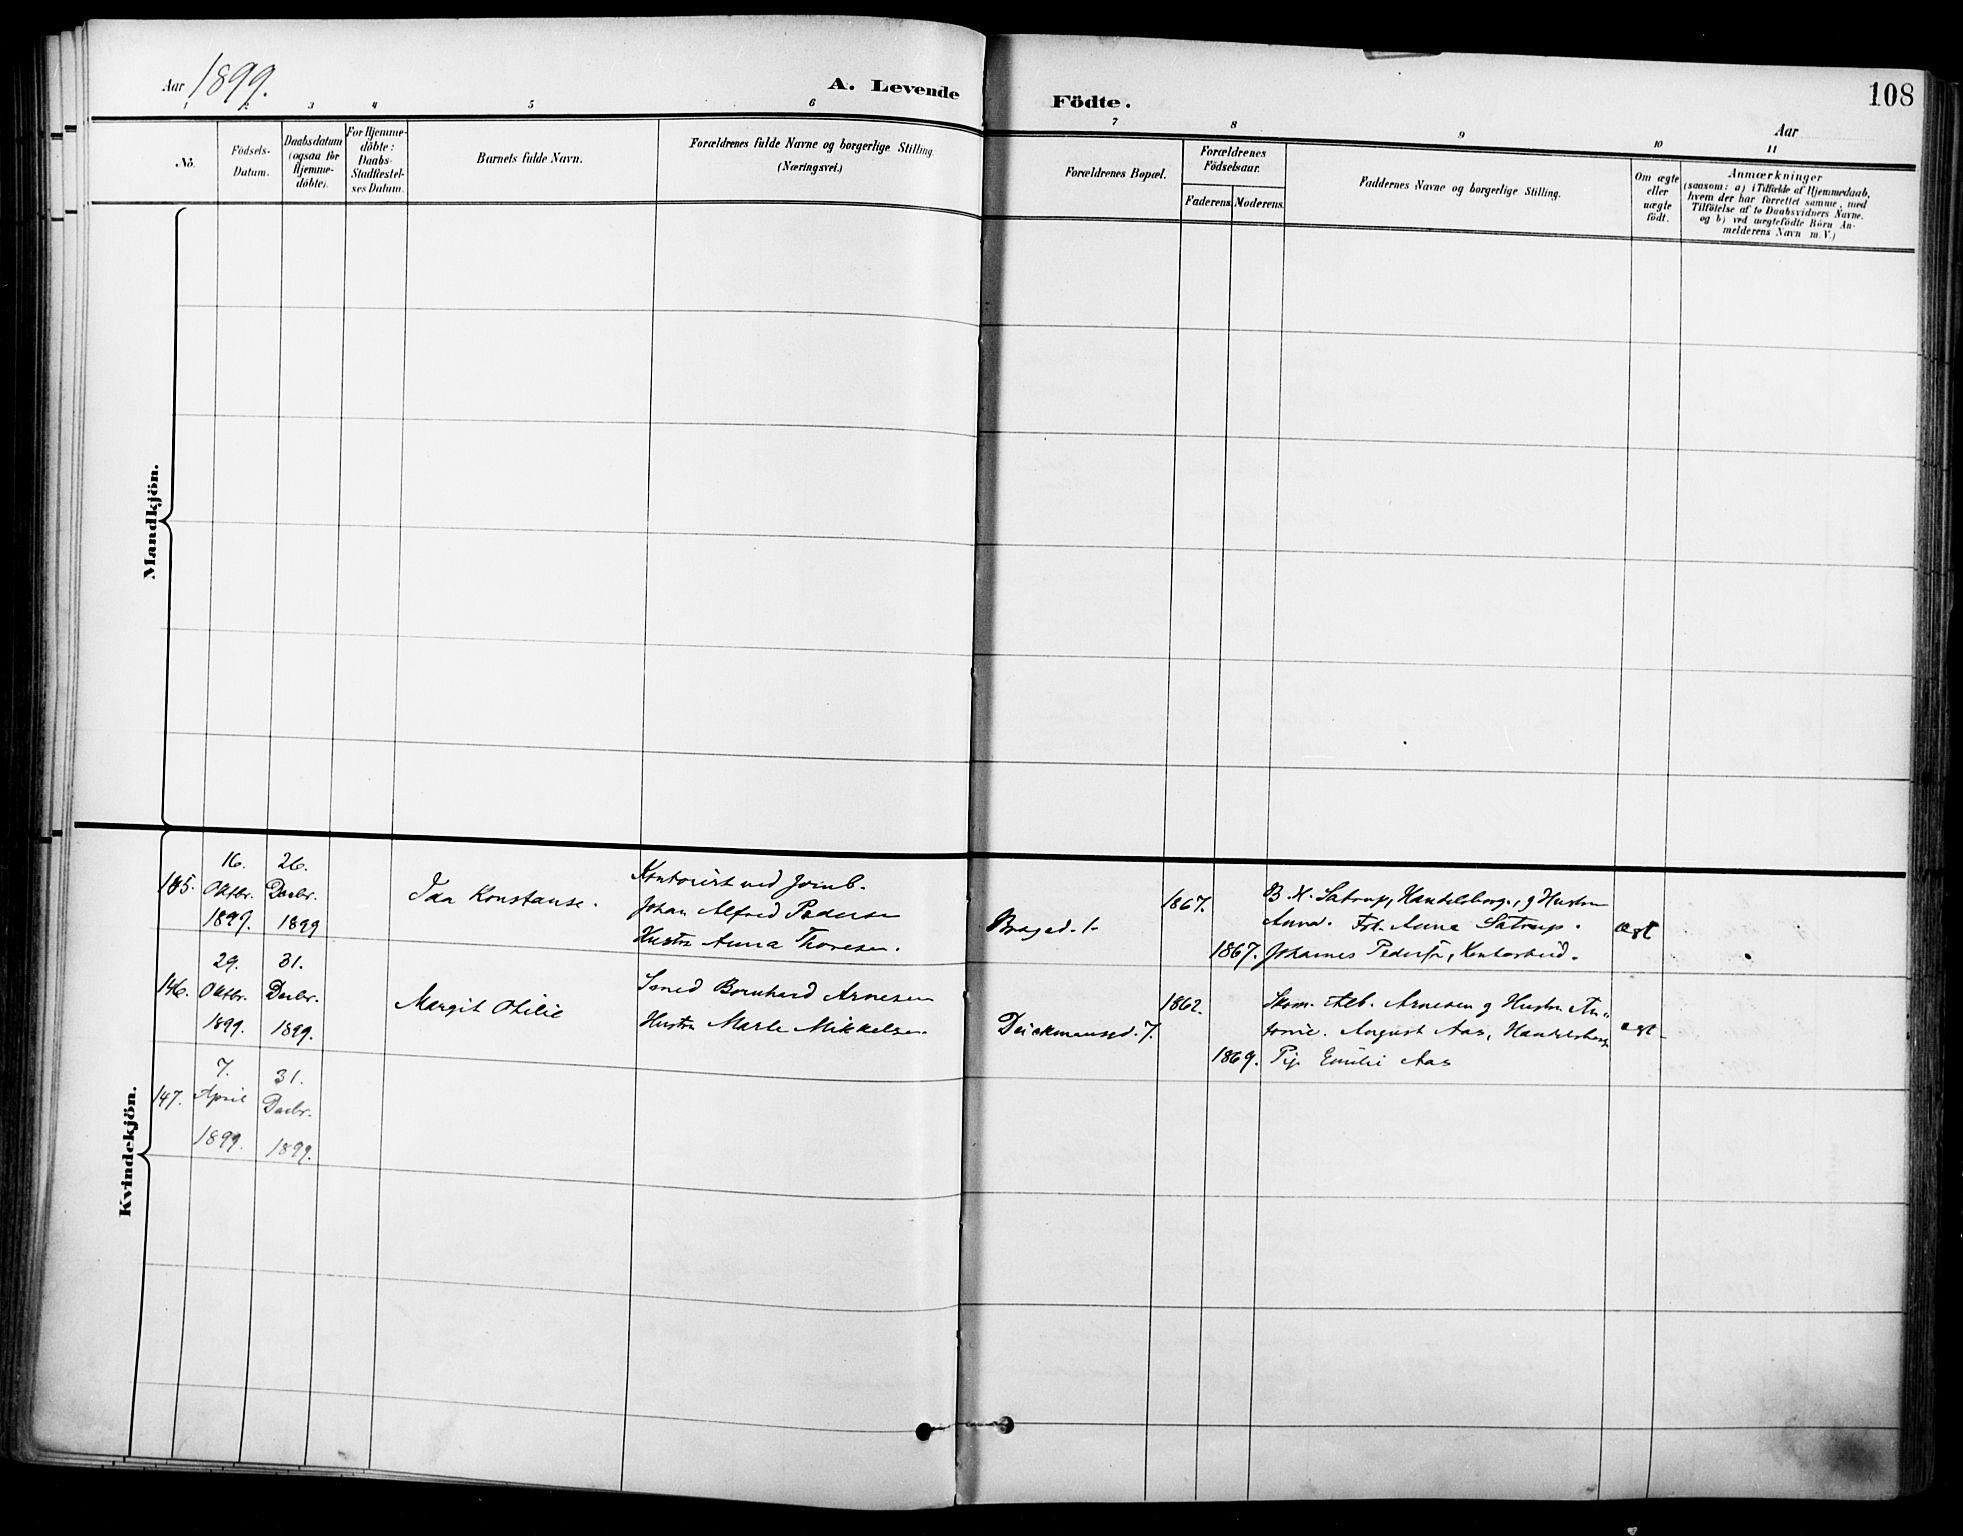 Aar 1899.
A. Levende
Födte.
108
Aar
1 2 3 4 5 6
7 8 9 10 11
No.
Födsels-
Datum.
Daabsdatum
(ogsaa for
Hjemme-
döbte).
For Hjemme-
döbte:
Daabs-
Stadfæstel-
ses Datum.
Barnets fulde Navn.
Forældrenes fulde Navne og borgerlige Stilling.
(Næringsvei.)
Forældrenes Bopæl.
Forældrenes
Födselsaar.
Faderens.
Moderens.
Faddernes Navne og borgerlige Stilling.
Om ægte
eller
uægte
födt.
Anmærkninger
(saasom: a) i Tilfælde af Hjemmedaab,
hvem der har forrettet samme, med
Tilföielse af to Daabsvidners Navne.
og b) ved uægtefödte Börn An-
melderens Navn m. V.)
Mandkjön.
Kvindekjön.
185.
16.
Oktbr.
1899.
26.
Decbr.
1899
Ida Konstanse.
Kontorist ved Jernb.
Johan Alfred Pedersen
Hustru Anna Thoresen.
Bragad. 1.
1867.
1867.
B. H. Satrup, Handelsborg., g Hustru
Anna. Frk. Anna Satrup.
Johannes Pedersen, Kontorbud.
ægt
146.
29.
Oktbr.
1899.
31.
Decbr.
1899.
Margit Otilie
Smed Bernhard Arnesen
Hustru Marle Mikkelsen.
Deickmansgd. 7.
1862.
1869.
Skom. Alb. Arnesen g Hustru An-
tonie. August Aas, Handelsbest
Pige Emilie Aas
ægt
147.
7.
April
1899.
31.
Decbr.
1899.